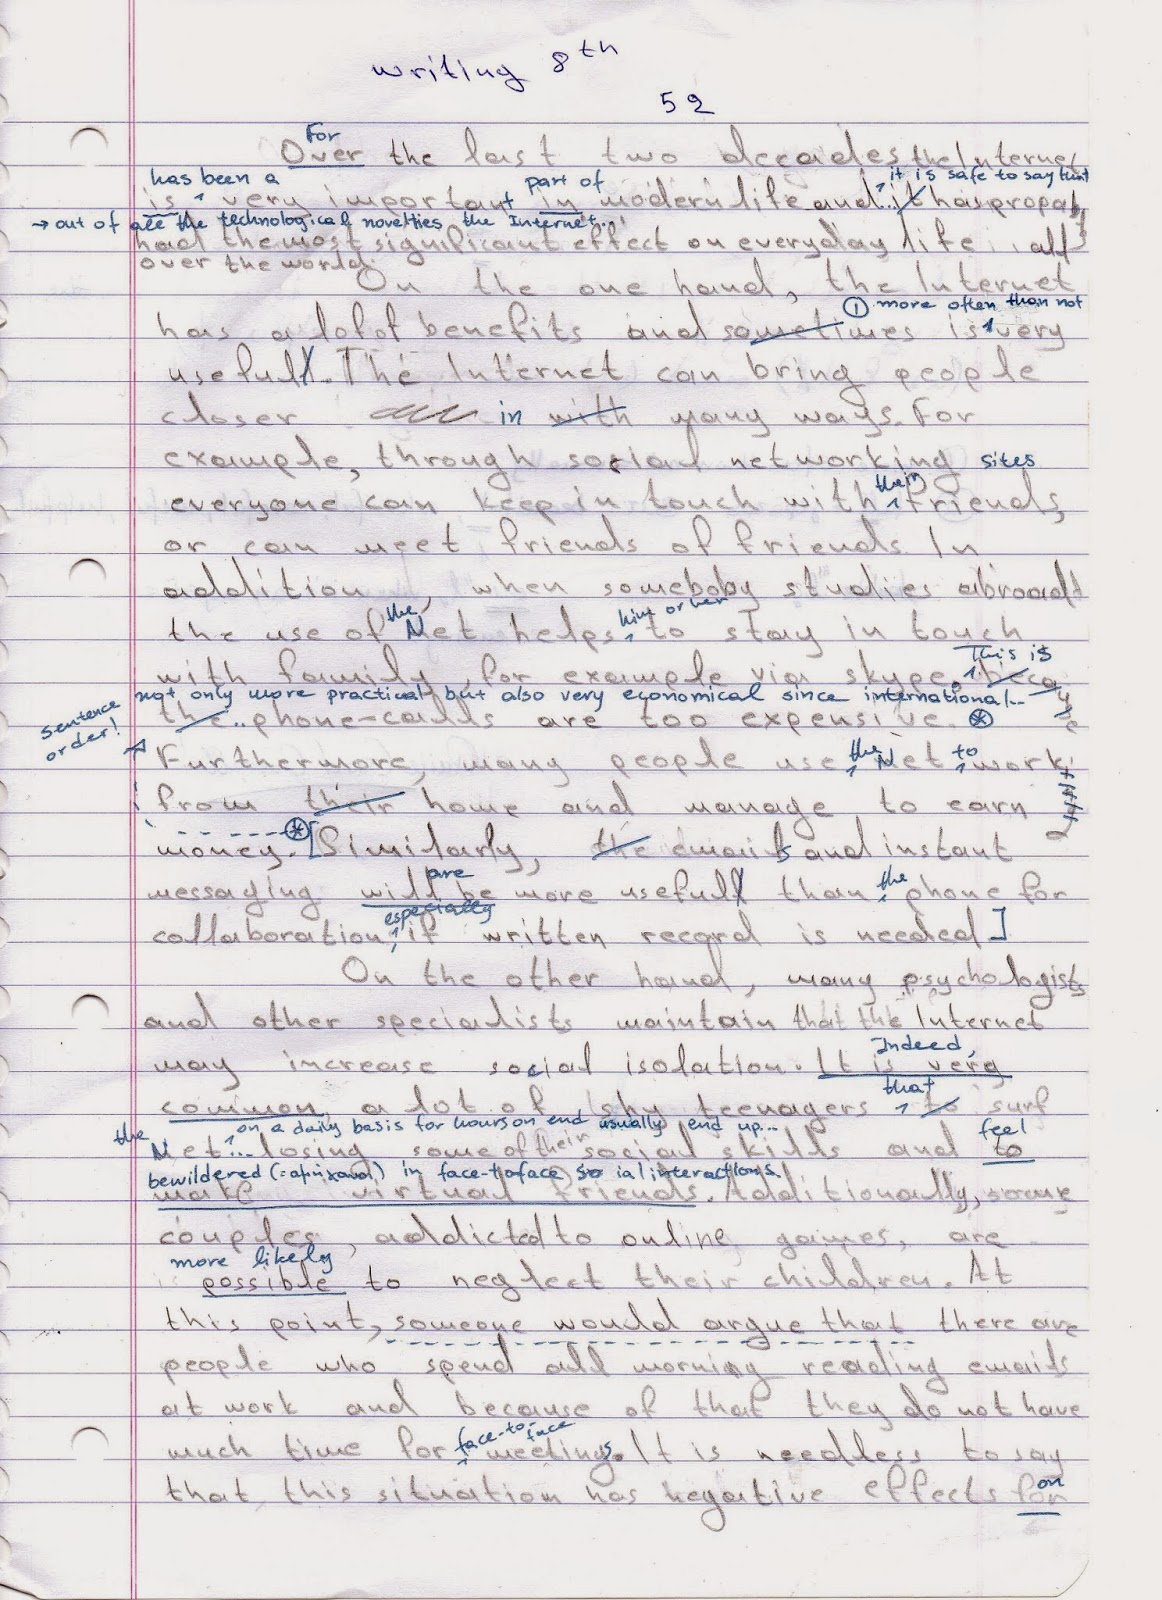 writing 8th
52
For
Over the last two decades the Internet
has been a part of it is safe to say that
is very important in modern life and it has propab
→ out of all the technological novelties the Internet...
had the most significant effect on everyday life all
over the world.
On the one hand, the Internet
① more often than not
has a lot of benefits and sometimes is very
usefull. The Internet can bring people
closer in with many ways. For
example, through social networking sites
their
everyone can keep in touch with friends,
or can meet friends of friends. In
addition, when someboby studies abroad
the him or her
the use of Net helps to stay in touch
This is
with family, for example via skype, because
not only more practical but also very economical since international..
sentence order!
the.. phone-calls are too expensive. ⊛
the to
Furthermore, many people use Net work
from their home and manage to earn
money. ⊛ [Similarly, the emails and instant
are
messaging will be more usefull than the phone for
especially
collaboration, if written record is needed]
On the other hand, many psychologists
and other specialists maintain that the Internet
Indeed,
may increase social isolation. It is very
that
common a lot of shy teenagers to surf
the on a daily basis for hours on end usually end up... feel
Net... losing some of their social skills and to
bewildered (=αμήχανοι) in face-to-face social interactions.
make virtual friends. Additionally, some
couples, addicted to online games, are
more likely
possible to neglect their children. At
this point, someone would argue that there are
people who spend all morning reading emails
at work and because of that they do not have
face-to-face
much time for meetings. It is needless to say
on
that this situation has negative effects for